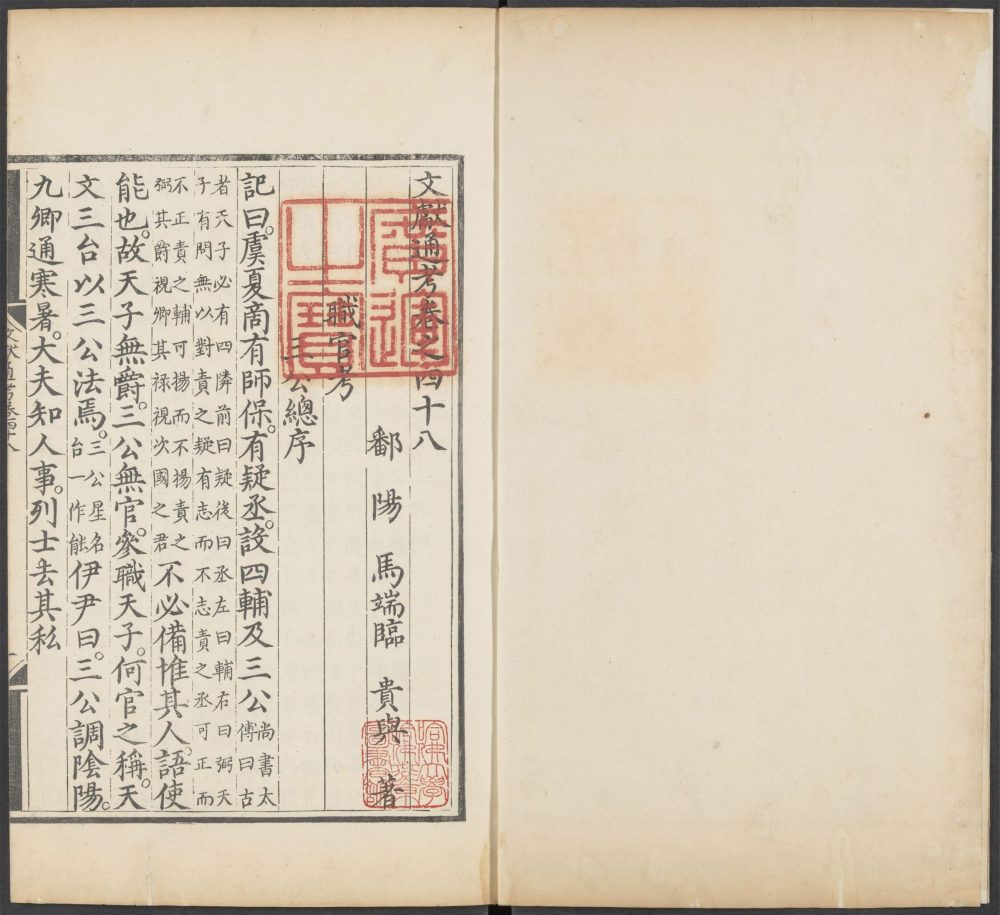 文獻通考卷之四十八
鄱陽馬端臨貴與著
職官考
三公總序
記曰。虞夏商有師保。有疑丞。設四輔及三公尚書太傅曰古
者天子必有四隣前曰疑後曰丞左曰輔右曰弼天
子有問無以對責之疑有志而不志責之丞可正而
不正責之輔可揚而不揚責之
弼其爵視卿其祿視次國之君不必備惟其人。語使
能也。故天子無爵。三公無官。參職天子。何官之稱。天
文三台以三公法焉。三公星名台一作能伊尹曰。三公調陰陽。
九卿通寒暑。大夫知人事。列士去其私
文獻通考卷四十八
廣運之寶
哈佛大學